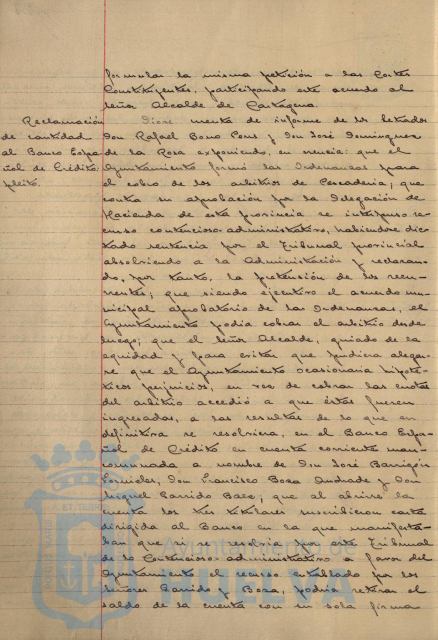 formular la misma petición a las Cortes
Constituyentes, participando este acuerdo al
Señor Alcalde de Cartagena.
Reclamación
de cantidad
al Banco Espa
ñol de Crédito.
pleito.
Diose cuenta de informe de los letrados
Don Rafael Bono Pons y Don José Dominguez
de la Rosa exponiendo, en esencia: que el
Ayuntamiento formó las Ordenanzas para
el cobro de los arbitrios de Pescadería; que
contra su aprobación por la Delegación de
Hacienda de esta provincia se interpuso re-
curso contencioso-administrativo, habiendose dic-
tado sentencia por el Tribunal provincial
absolviendo a la Administración y rechazan-
do, por tanto, la pretensión de los recu-
rrentes; que siendo ejecutivo el acuerdo mu-
nicipal aprobatorio de las Ordenanzas, el
Ayuntamiento podía cobrar el arbitrio desde
luego; que el Señor Alcalde, guiado de la
equidad y para evitar que pudiera alegar-
se que el Ayuntamiento ocasionaria hipoté-
ticos perjuicios, en vez de cobrar las cuotas
del arbitrio accedió a que éstas fueren
ingresadas, a las resultas de lo que en
definitiva se resolviera, en el Banco Espa-
ñol de Crédito en cuenta corriente man-
comunada a nombre de Don José Barrigón
Don Francisco Boza Andrade y Don
Miguel Garrido Baco; que al abrirse la
cuenta los tres titulares suscribieron carta
dirigida al Banco en la que manifesta-
ban que si se resolvia por este Tribunal
de lo Contencioso-administrativo a favor del
Ayuntamiento el recurso entablado por los
Señores Garrido y Boza, podria retirar el
saldo de la cuenta con su sola firma
Ayuntamiento de
HUELVA